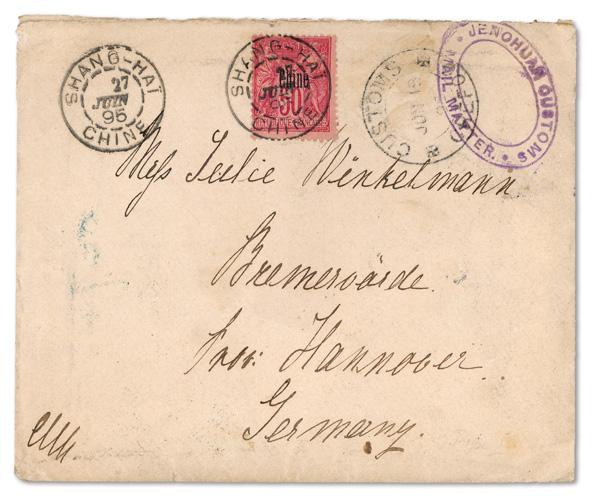 SHANG-HAÏ
27
JUIN
95
CHINE
SHANG-HAÏ
27
JUIN
95
CHINE
Chine
50
CUSTOMS
JUN 19
JENCHUAN CUSTOMS
MAIL MATTER.
Miss Julie Winkelmann
Bremervörde.
Prov. Hannover.
Germany.